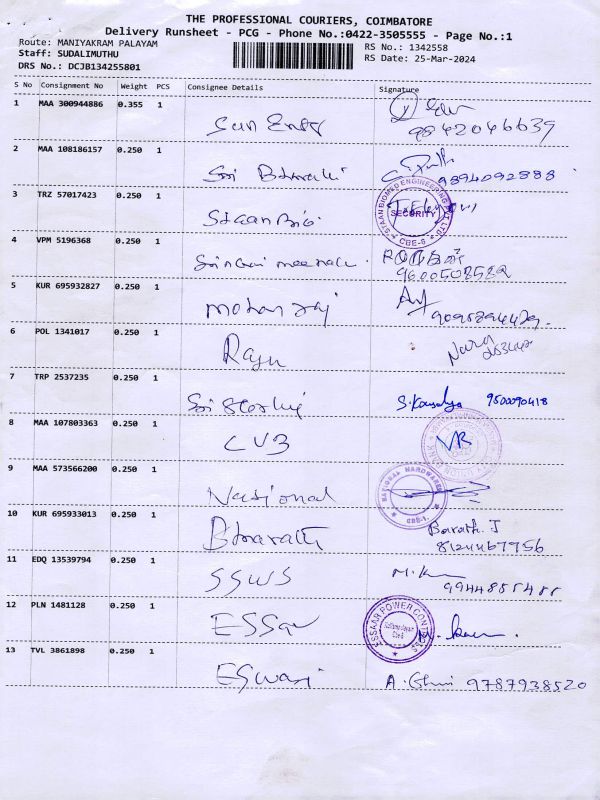 THE PROFESSIONAL COURIERS, COIMBATORE
Delivery Runsheet - PCG - Phone No.:0422-3505555 - Page No.:1
Route: MANIYAKRAM PALAYAM
Staff: SUDALIMUTHU
DRS No.: DCJB134255801
RS No.: 1342558
RS Date: 25-Mar-2024
S No Consignment No Weight PCS Consignee Details Signature
1 MAA 300944886 0.355 1
Sun Engg 9842046639
2 MAA 108186157 0.250 1
Sri Bharathi 9894092888
3 TRZ 57017423 0.250 1
Staan Bio.
STAAN BIOMED ENGINEERING PVT LTD. SECURITY CBE-6
4 VPM 5196368 0.250 1
9600508582
5 KUR 695932827 0.250 1
mohan raj
6 POL 1341017 0.250 1
Raju Nara
7 TRP 2537235 0.250 1
Sri S. Kousalya 9500090418
8 MAA 107803363 0.250 1
CUB VR
9 MAA 573566200 0.250 1
National
NATIONAL HARDWARE CBE-1.
10 KUR 695933013 0.250 1
Bharath Barath. J
8124467956
11 EDQ 13539794 0.250 1
SSWS M.K
9944855455
12 PLN 1481128 0.250 1
ESSar
ESSAAR POWER CONTROLS
13 TVL 3861898 0.250 1
Eswari 9787938520